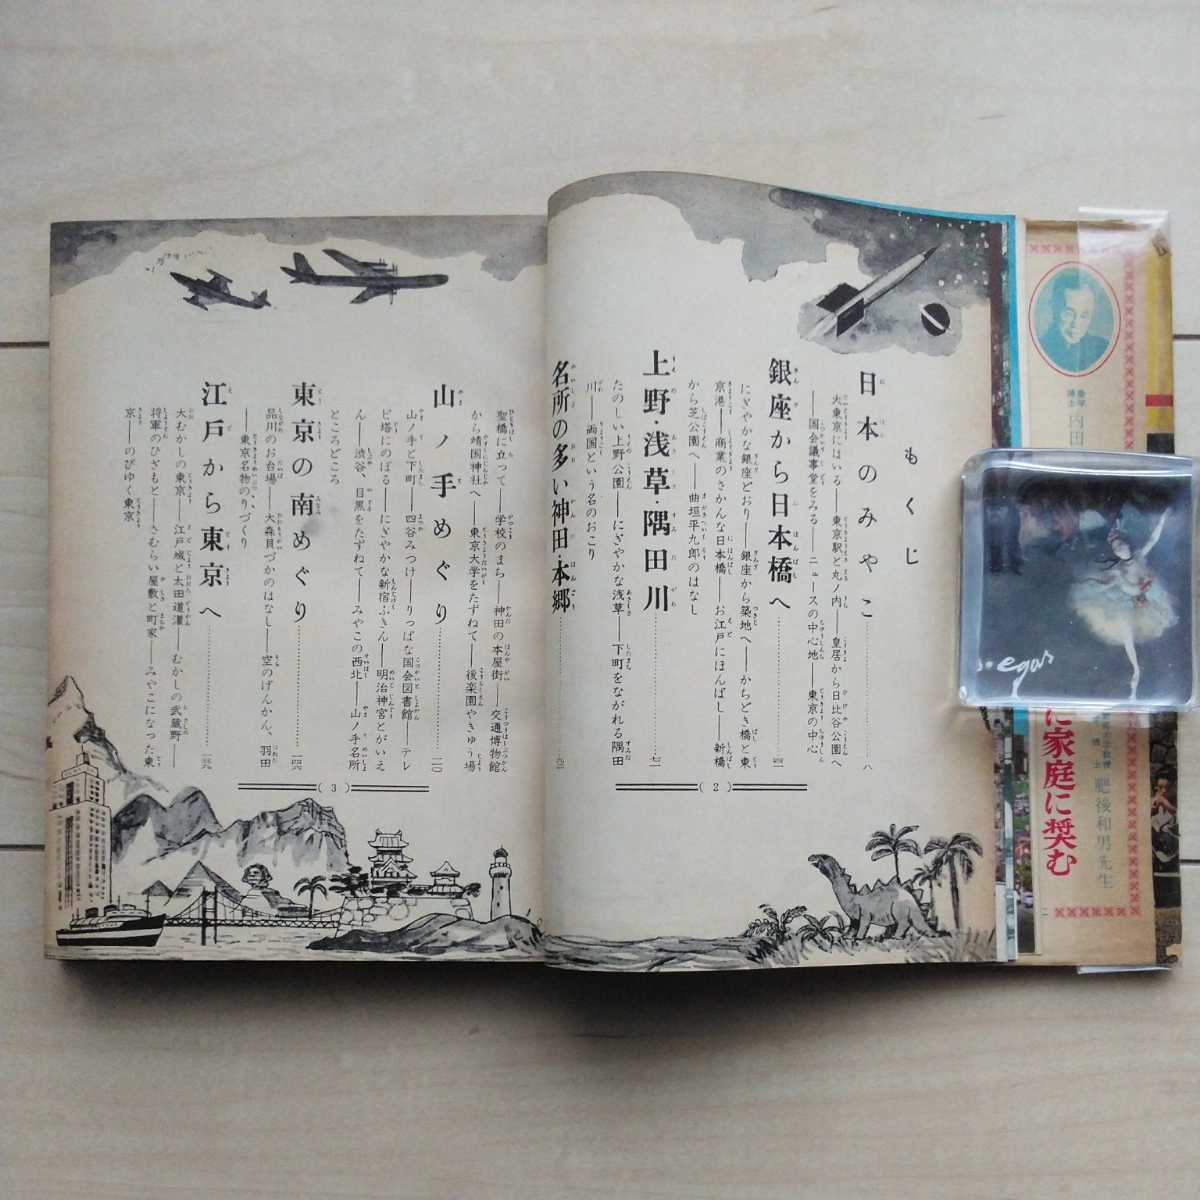 もくじ
日本のみやこ……八
大東京にはいる――東京駅と丸ノ内――皇居から日比谷公園へ
――国会議事堂をみる――ニュースの中心地――東京の中心
銀座から日本橋へ
にぎやかな銀座どおり――銀座から築地へ――かちどき橋と東
京港――商業のさかんな日本橋――お江戸にほんばし――新橋
から芝公園へ――曲垣平九郎のはなし
上野・浅草・隅田川
たのしい上野公園――にぎやかな浅草――下町をながれる隅田
川――両国という名のおこり
名所の多い神田・本郷
聖橋に立って――学校のまち――神田の本屋街――交通博物館
から靖国神社へ――東京大学をたずねて――後楽園やきゅう場
山ノ手めぐり
山ノ手と下町――四谷みつけ――りっぱな国会図書館――テレ
ビ塔にのぼる――にぎやかな新宿ふきん――明治神宮とがいえ
ん――渋谷、目黒をたずねて――みやこの西北――山ノ手名所
ところどころ
東京の南めぐり
品川のお台場――大森貝づかのはなし――空のげんかん、羽田
――東京名物のりづくり
江戸から東京へ
大むかしの東京――江戸城と太田道灌――むかしの武蔵野――
将軍のひざもと――さむらい屋敷と町家――みやこになった東
京――のびゆく東京
(2)
(3)
内田
肥後和男先生
に家庭に奨む
egas